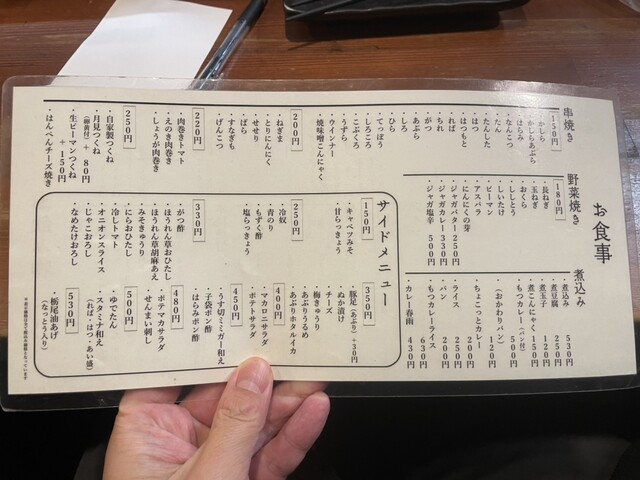 お食事
串焼き
150円
・かしら
・かしらあぶら
・はらみ
・なんこつ
・たん
・たんした
・はつ
・はつもと
・ればー
・ちれ
・がつ
・あぶら
・しろ
・ひら
・てっぽう
・しろころ
・こぶくろ
・うずら
・ウインナー
・焼味噌こんにゃく
200円
・ねぎま
・とりにんにく
・せせり
・ばら
・すなぎも
・げんこつ
220円
・肉巻きトマト
・えのき肉巻き
・しょうが肉巻き
250円
・自家製つくね
・月見つくね
(卵黄付) + 80円
・生ピーマンつくね
+ 150円
・はんぺんチーズ焼き
野菜焼き
180円
・長ねぎ
・玉ねぎ
・おくら
・ししとう
・しいたけ
・ピーマン
・アスパラ
・にんにくの芽
・ジャガバター 250円
・ジャガカレー 330円
・ジャガ塩辛 500円
煮込み
・煮込み 530円
・煮豆腐 250円
・煮玉子 120円
・煮こんにゃく 150円
・もつカレー(パン付) 500円
(おかわりパン) 120円
・ちょこっとカレー 200円
・ライス 250円
・パン 200円
・もつカレーライス 630円
・カレー春雨 430円
サイドメニュー
150円
・キャベツみそ
・甘らっきょう
250円
・冷奴
・青のり
・もずく酢
・塩らっきょう
330円
・がつ酢
・ほうれん草おひたし
・ほうれん草胡麻あえ
・みそきゅうり
・にらおひたし
・冷しトマト
・オニオンスライス
・じゃこおろし
・なめたけおろし
350円
・豚足(あぶり) +30円
・ぬか漬け
・チーズ
・梅きゅうり
・あぶりうるめ
・あぶりホタルイカ
400円
・マカロニサラダ
・ポテトサラダ
450円
・うす切ミミガー和え
・子袋ポン酢
・はらみポン酢
480円
・ポテマカサラダ
・せんまい刺し
500円
・ゆでたん
・スタミナ和え
(れば・はつ・あい盛)
530円
・栃尾油あげ
(なっとう入り)